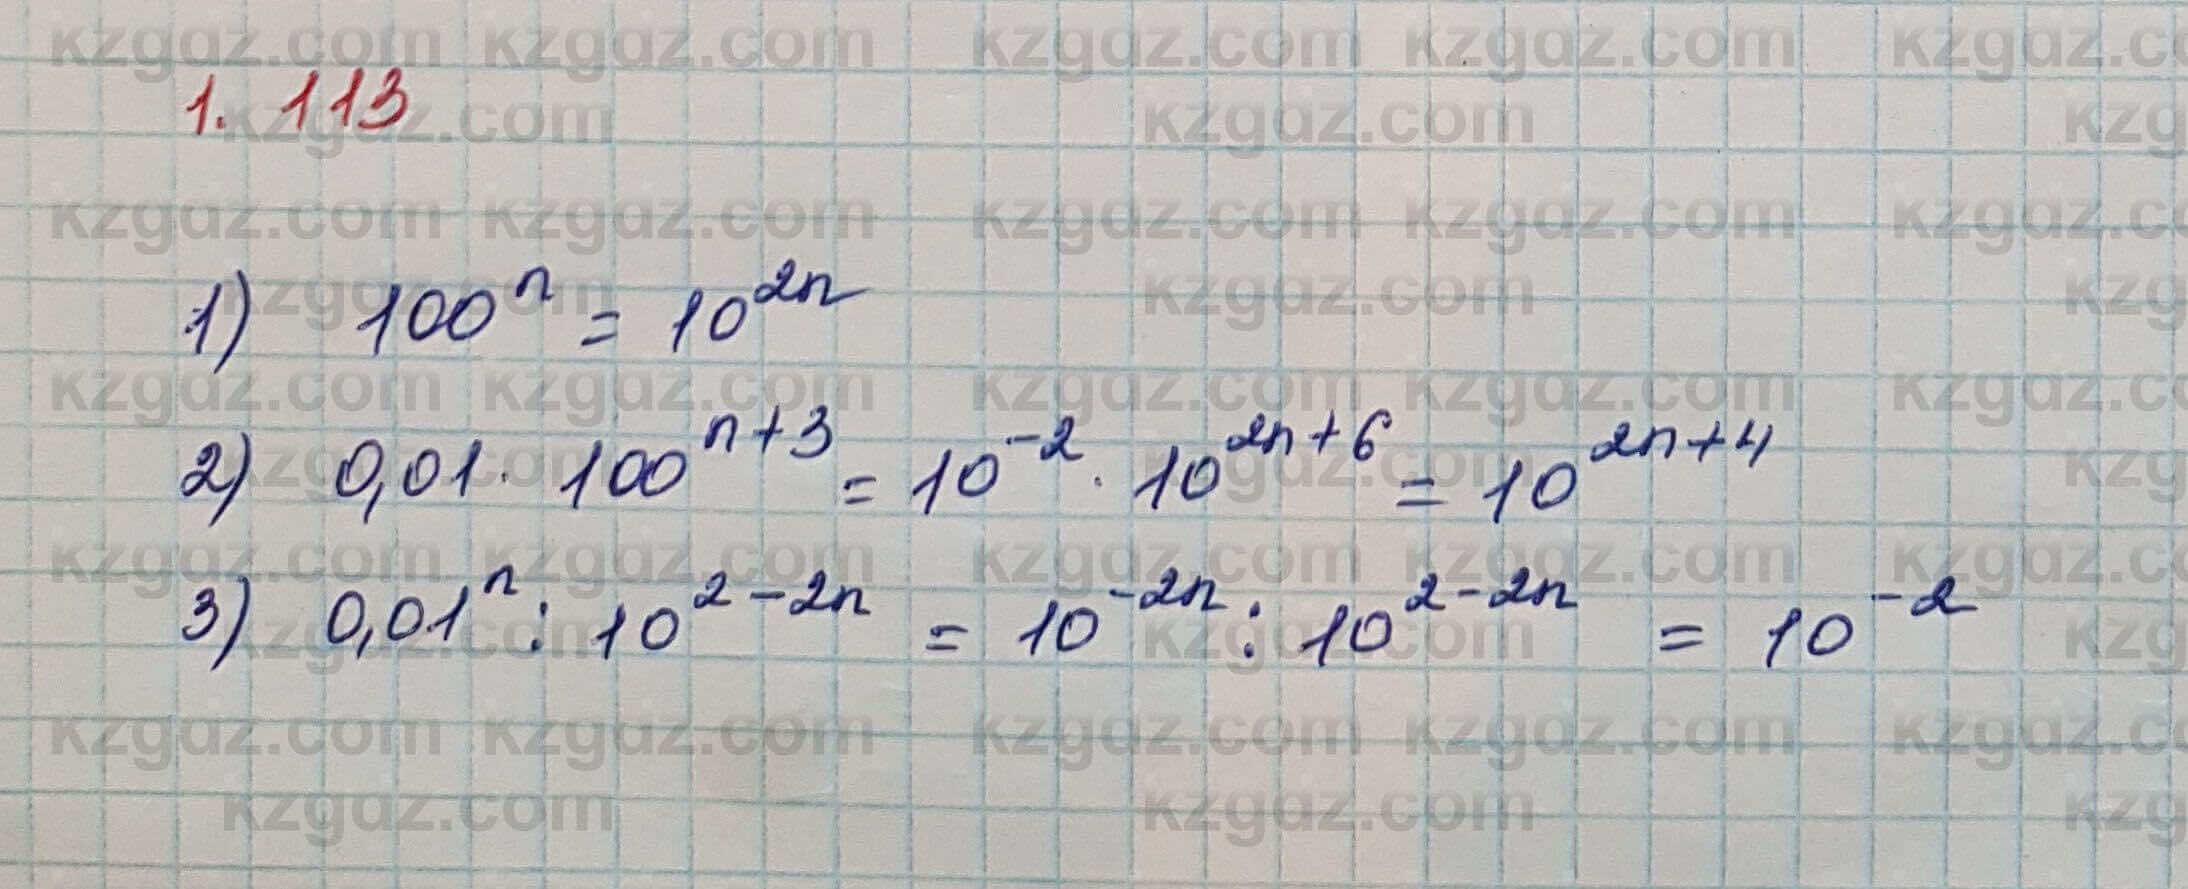 1.113
1) 100^n = 10^{2n}
2) 0,01 · 100^{n+3} = 10^{-2} · 10^{2n+6} = 10^{2n+4}
3) 0,01^n : 10^{2-2n} = 10^{-2n} : 10^{2-2n} = 10^{-2}
kzgdz.com